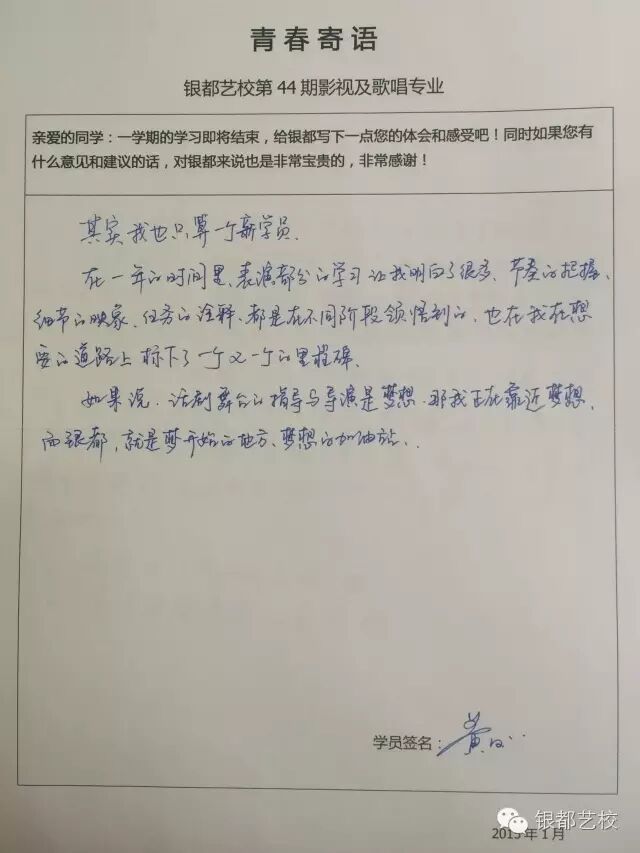 青春寄语
银都艺校第 44 期影视及歌唱专业
亲爱的同学：一学期的学习即将结束，给银都写下一点您的体会和感受吧！同时如果您有
什么意见和建议的话，对银都来说也是非常宝贵的，非常感谢！
其实我也只算一个新学员.
在一年的时间里、表演部分的学习让我明白了很多、节奏的把握、
细节的映象、任务的诠释、都是在不同阶段领悟到的、也在我在想
要的道路上标下了一个又一个的里程碑.
如果说.话剧舞台的指导与导演是梦想.那我正在靠近梦想.
而银都,就是梦开始的地方、梦想的加油站..
学员签名：黄
银都艺校
2015 年 1 月